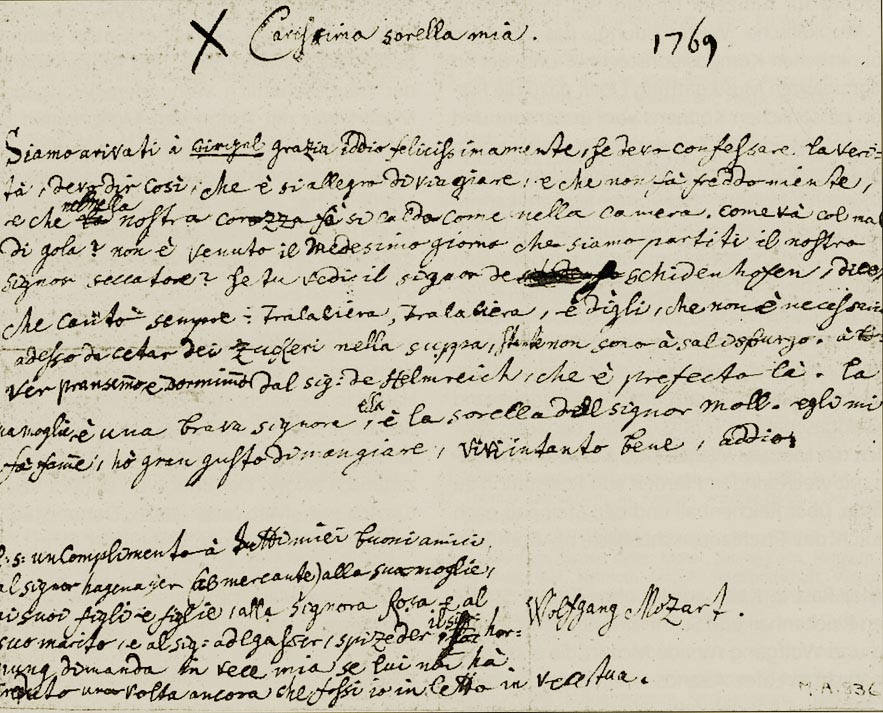 X Carissima sorella mia. 1769
Siamo arivati à Wirgel grazia iddio felicissimamente, se devo confessare la veri=
tà, devo dir così, che è si allegro di viagiare, e che non fà freddo niente,
e che nella nostra corozza fà si caldo come nella camera. come và col mal
di gola? non è venuto il medesimo giorno che siamo partiti il nostro
signor seccatore? se tu vedi il signor de schidenhofen, dicej
che canto sempre: Tralaliera, Tralaliera, e digli, che non è necessario
adesso da cetar dei Zuccheri nella suppa, non sono à salisburgo. à
ver pransimo e dormimo dal sig: de Helmreich, che è prefecto là. la
sua moglie è una brava signora, ella è la sorella dell signor Moll. egli mi
fà fame, hò gran gusto di mangiare, vivi intanto bene, addio
P: s: un Complimento à tutti miei buoni amici,
al signor hagenauer (il mercante) alla sua moglie,
ai suoi figli e figlie, alla signora Rosa, e al
suo marito, e al sig: adlgasser, spizeder, il sig: hor=
nung dimanda in vece mia se lui non hà
creduto una volta ancora che fossi io in letto in vece tua.
Wolfgang Mozart.
M.A. 836